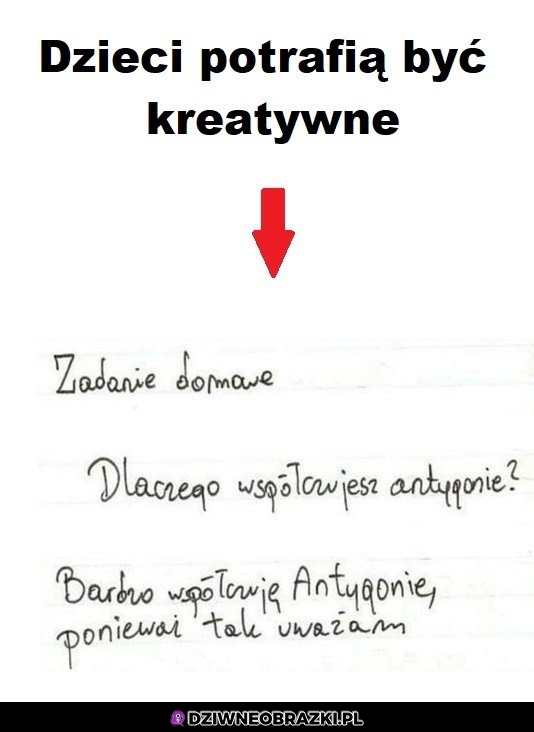 Dzieci potrafią być
kreatywne
Zadanie domowe
Dlaczego współczujesz antygonie?
Bardzo współczuję Antygonie,
ponieważ tak uważam
DZIWNEOBRAZKI.PL